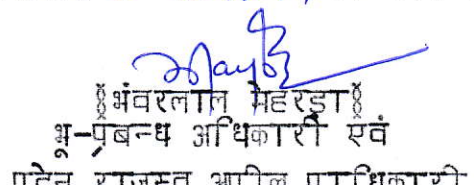 (भंवरलाल मेहरड़ा)
भू-प्रबन्ध अधिकारी एवं
पदेन राजस्व अपील प्राधिकारी